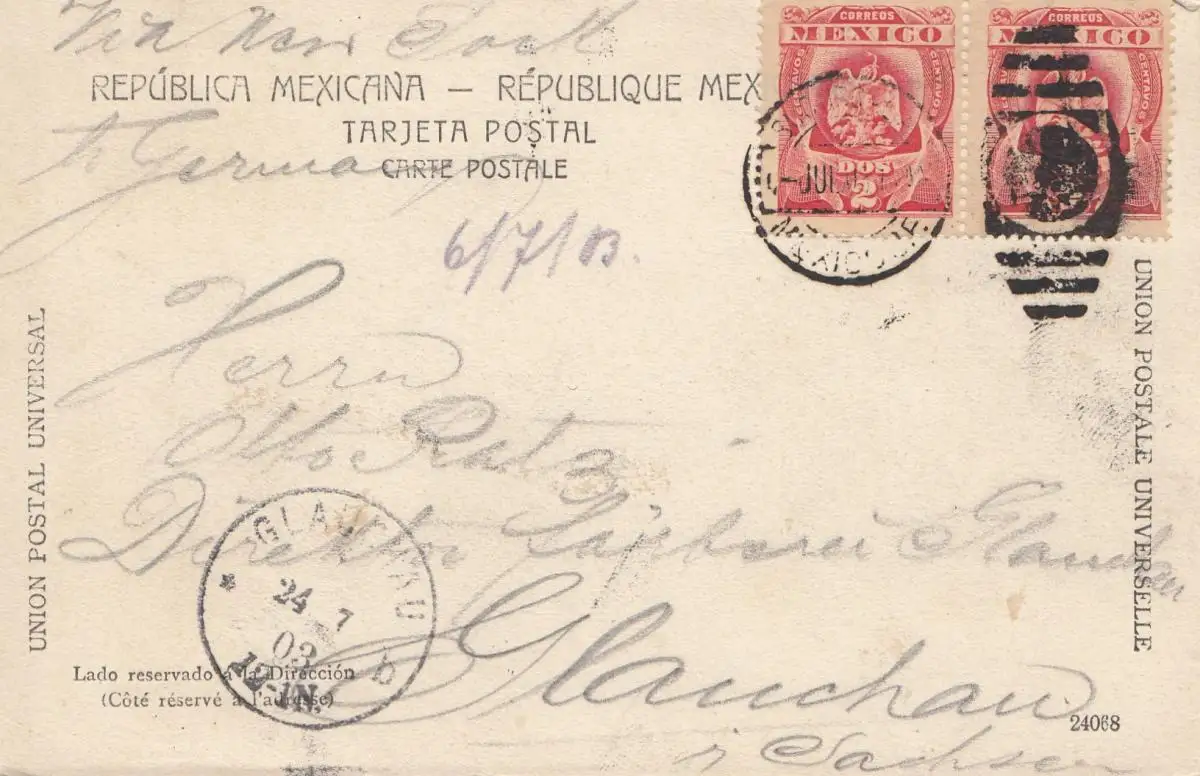 Via New York
REPÚBLICA MEXICANA — RÉPUBLIQUE MEX
TARJETA POSTAL
CARTE POSTALE
Germany
6/7/03.
CORREOS
MEXICO
CENTAVOS
DOS
2
CORREOS
MEXICO
CENTAVOS
JUL
MEXICO
Herrn
Otto
Direktor Glauchau
Glauchau
i Sachsen
GLAUCHAU
* 24 7
03
12-1N.
b
UNION POSTAL UNIVERSAL
UNION POSTALE UNIVERSELLE
Lado reservado á la Dirección
(Côté réservé à l'adresse)
24068